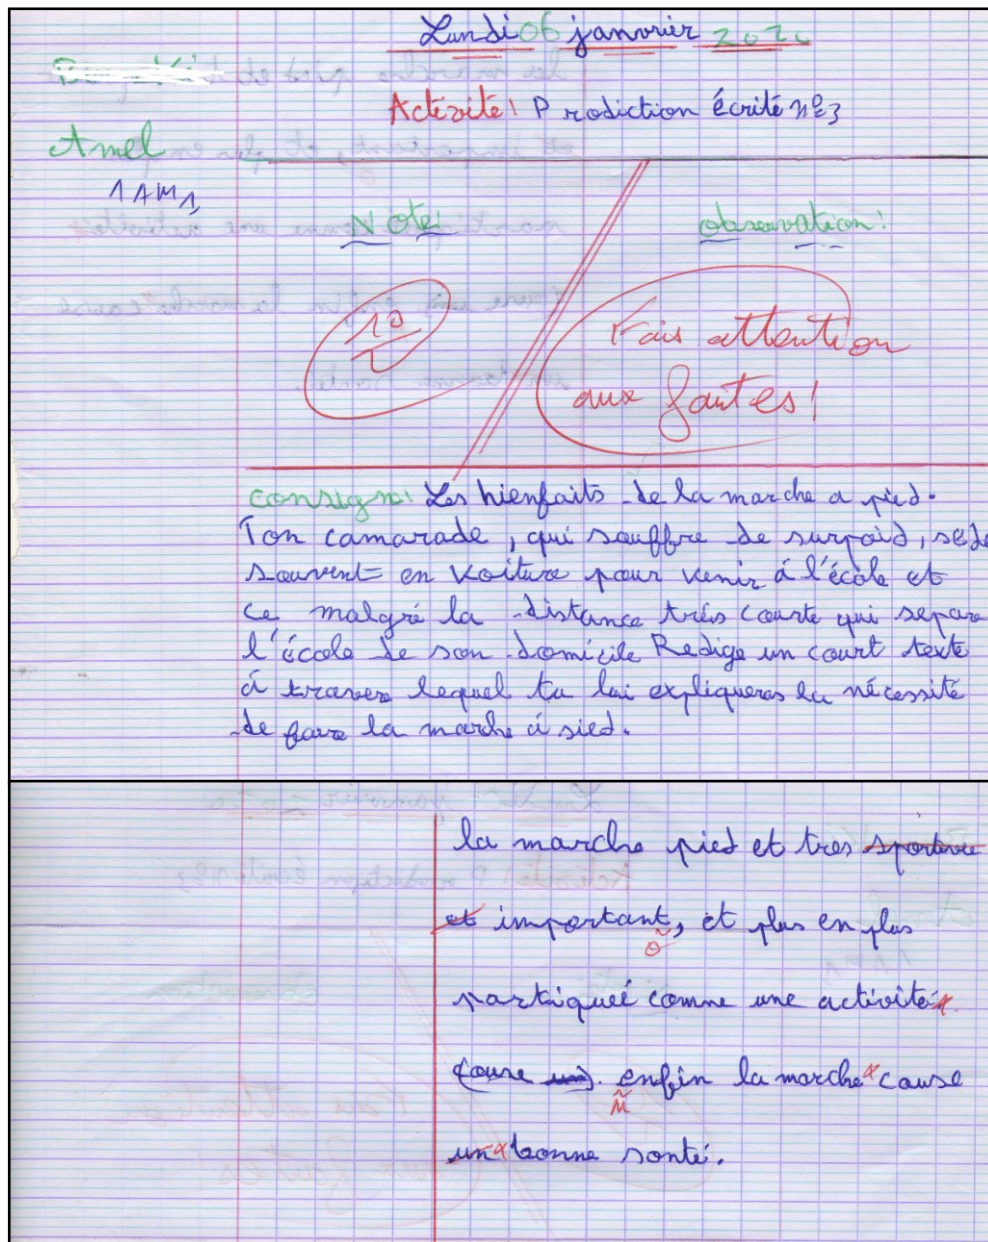 Lundi 06 janvier 2020
Activité! Prodiction écrité n°3
Amel
1AM1
Note!
observation!
10
Fais attention
aux fautes!
consigne! Les bienfaits de la marche a pied.
Ton camarade, qui souffre de surpoid, sede
souvent en voiture pour venir á l'école et
ce malgré la distance trés courte qui separe
l'école de son domicile Redige un court texte
á travers lequel tu lui expliqueras la nécessité
de faire la marche á pied.
la marche pied et tres sportive
et important, et plus en plus
partiqueé comne une activité
enfin la marche cause
un bonne santé.